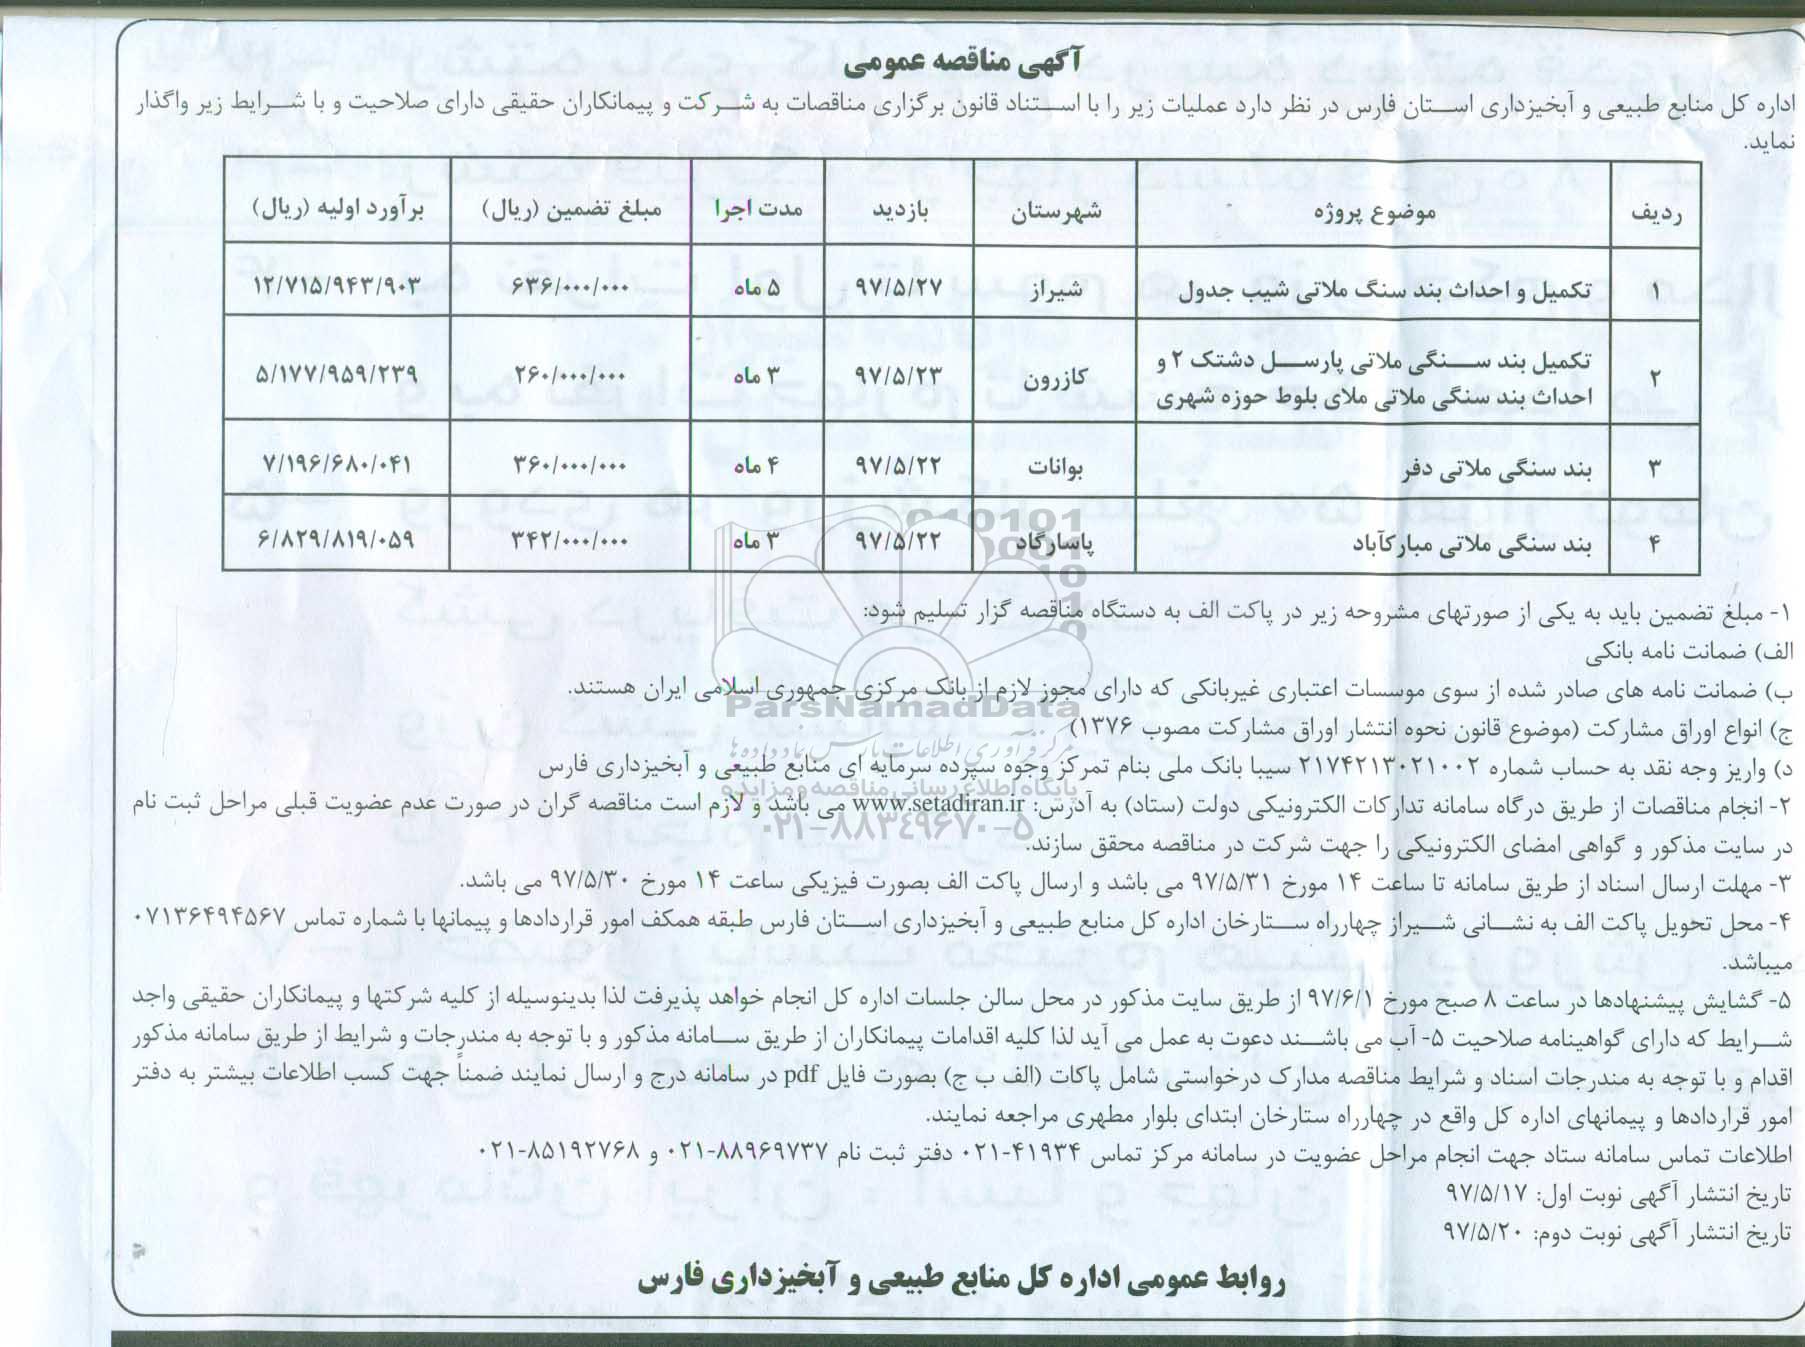 آگهی مناقصه عمومی
اداره کل منابع طبیعی و آبخیزداری استان فارس در نظر دارد عملیات زیر را با استناد قانون برگزاری مناقصات به شرکت و پیمانکاران حقیقی دارای صلاحیت و با شرایط زیر واگذار
نماید.
ردیف موضوع پروژه شهرستان بازدید مدت اجرا مبلغ تضمین (ریال) برآورد اولیه (ریال)
۱ تکمیل و احداث بند سنگ ملاتی شیب جدول شیراز ۹۷/۵/۲۷ ۵ ماه ۶۳۶/۰۰۰/۰۰۰ ۱۲/۷۱۵/۹۴۳/۹۰۳
۲ تکمیل بند سنگی ملاتی پارسل دشتک ۲ و
احداث بند سنگی ملاتی ملای بلوط حوزه شهری کازرون ۹۷/۵/۲۳ ۳ ماه ۲۶۰/۰۰۰/۰۰۰ ۵/۱۷۷/۹۵۹/۲۳۹
۳ بند سنگی ملاتی دفر بوانات ۹۷/۵/۲۲ ۴ ماه ۳۶۰/۰۰۰/۰۰۰ ۷/۱۹۶/۶۸۰/۰۴۱
۴ بند سنگی ملاتی مبارکآباد پاسارگاد ۹۷/۵/۲۲ ۳ ماه ۳۴۲/۰۰۰/۰۰۰ ۶/۸۲۹/۸۱۹/۰۵۹
۱- مبلغ تضمین باید به یکی از صورتهای مشروحه زیر در پاکت الف به دستگاه مناقصه گزار تسلیم شود:
الف) ضمانت نامه بانکی
ب) ضمانت نامه های صادر شده از سوی موسسات اعتباری غیربانکی که دارای مجوز لازم از بانک مرکزی جمهوری اسلامی ایران هستند.
ParsNamadData
ج) انواع اوراق مشارکت (موضوع قانون نحوه انتشار اوراق مشارکت مصوب ۱۳۷۶)
مرکز فرآوری اطلاعات پارس نماد داده ها
د) واریز وجه نقد به حساب شماره ۲۱۷۴۲۱۳۰۲۱۰۰۲ سیبا بانک ملی بنام تمرکز وجوه سپرده سرمایه ای منابع طبیعی و آبخیزداری فارس
پایگاه اطلاع رسانی مناقصه و مزایده
۲- انجام مناقصات از طریق درگاه سامانه تدارکات الکترونیکی دولت (ستاد) به آدرس: www.setadiran.ir می باشد و لازم است مناقصه گران در صورت عدم عضویت قبلی مراحل ثبت نام
۰۲۱-۸۸۳۴۹۶۷۰-۵
در سایت مذکور و گواهی امضای الکترونیکی را جهت شرکت در مناقصه محقق سازند.
۳- مهلت ارسال اسناد از طریق سامانه تا ساعت ۱۴ مورخ ۹۷/۵/۳۱ می باشد و ارسال پاکت الف بصورت فیزیکی ساعت ۱۴ مورخ ۹۷/۵/۳۰ می باشد.
۴- محل تحویل پاکت الف به نشانی شیراز چهارراه ستارخان اداره کل منابع طبیعی و آبخیزداری استان فارس طبقه همکف امور قراردادها و پیمانها با شماره تماس ۰۷۱۳۶۴۹۴۵۶۷
میباشد.
۵- گشایش پیشنهادها در ساعت ۸ صبح مورخ ۹۷/۶/۱ از طریق سایت مذکور در محل سالن جلسات اداره کل انجام خواهد پذیرفت لذا بدینوسیله از کلیه شرکتها و پیمانکاران حقیقی واجد
شرایط که دارای گواهینامه صلاحیت ۵- آب می باشند دعوت به عمل می آید لذا کلیه اقدامات پیمانکاران از طریق سامانه مذکور و با توجه به مندرجات و شرایط از طریق سامانه مذکور
اقدام و با توجه به مندرجات اسناد و شرایط مناقصه مدارک درخواستی شامل پاکات (الف ب ج) بصورت فایل pdf در سامانه درج و ارسال نمایند ضمناً جهت کسب اطلاعات بیشتر به دفتر
امور قراردادها و پیمانهای اداره کل واقع در چهارراه ستارخان ابتدای بلوار مطهری مراجعه نمایند.
اطلاعات تماس سامانه ستاد جهت انجام مراحل عضویت در سامانه مرکز تماس ۰۲۱-۴۱۹۳۴ دفتر ثبت نام ۰۲۱-۸۸۹۶۹۷۳۷ و ۰۲۱-۸۵۱۹۲۷۶۸
تاریخ انتشار آگهی نوبت اول: ۹۷/۵/۱۷
تاریخ انتشار آگهی نوبت دوم: ۹۷/۵/۲۰
روابط عمومی اداره کل منابع طبیعی و آبخیزداری فارس